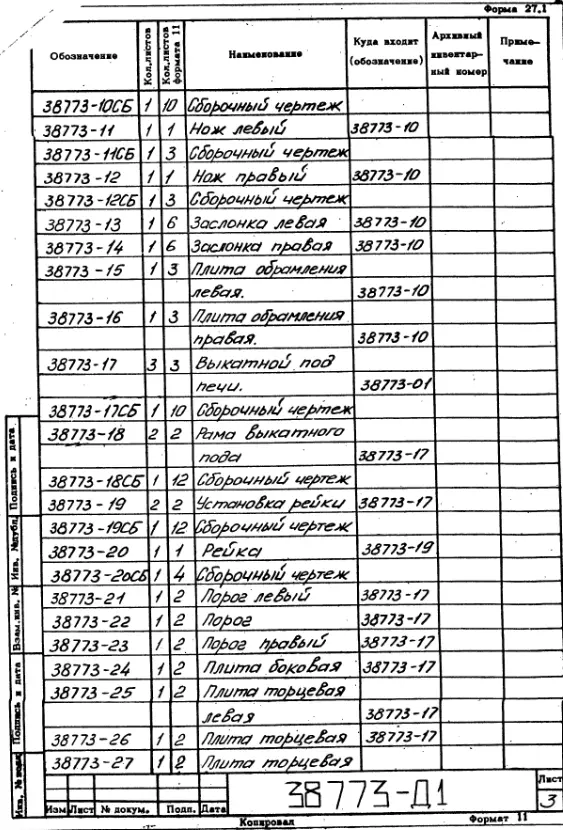 Форма 27.1
Обозначение Кол.листов Кол.листов формата 11 Наименование Куда входит (обозначение) Архивный инвентарный номер Примечание
38773-10СБ 1 10 Сборочный чертеж
38773-11 1 1 Нож левый 38773-10
38773-11СБ 1 3 Сборочный чертеж
38773-12 1 1 Нож правый 38773-10
38773-12СБ 1 3 Сборочный чертеж
38773-13 1 6 Заслонка левая 38773-10
38773-14 1 6 Заслонка правая 38773-10
38773-15 1 3 Плита обрамления
левая. 38773-10
38773-16 1 3 Плита обрамления
правая. 38773-10
38773-17 3 3 Выкатной под
печи. 38773-01
38773-17СБ 1 10 Сборочный чертеж
38773-18 2 2 Рама выкатного
пода 38773-17
38773-18СБ 1 12 Сборочный чертеж
38773-19 2 2 Установка рейки 38773-17
38773-19СБ 1 12 Сборочный чертеж
38773-20 1 1 Рейка 38773-19
38773-20СБ 1 4 Сборочный чертеж
38773-21 1 2 Порог левый 38773-17
38773-22 1 2 Порог 38773-17
38773-23 1 2 Порог правый 38773-17
38773-24 1 2 Плита боковая 38773-17
38773-25 1 2 Плита торцевая
левая 38773-17
38773-26 1 2 Плита торцевая 38773-17
38773-27 1 2 Плита торцевая
Подпись и дата
Инв. №дубл.
Взам.инв. №
Подпись и дата
Инв. №подл.
Изм Лист № докум. Подп. Дата
38773-Д1
Лист
3
Копировал Формат 11